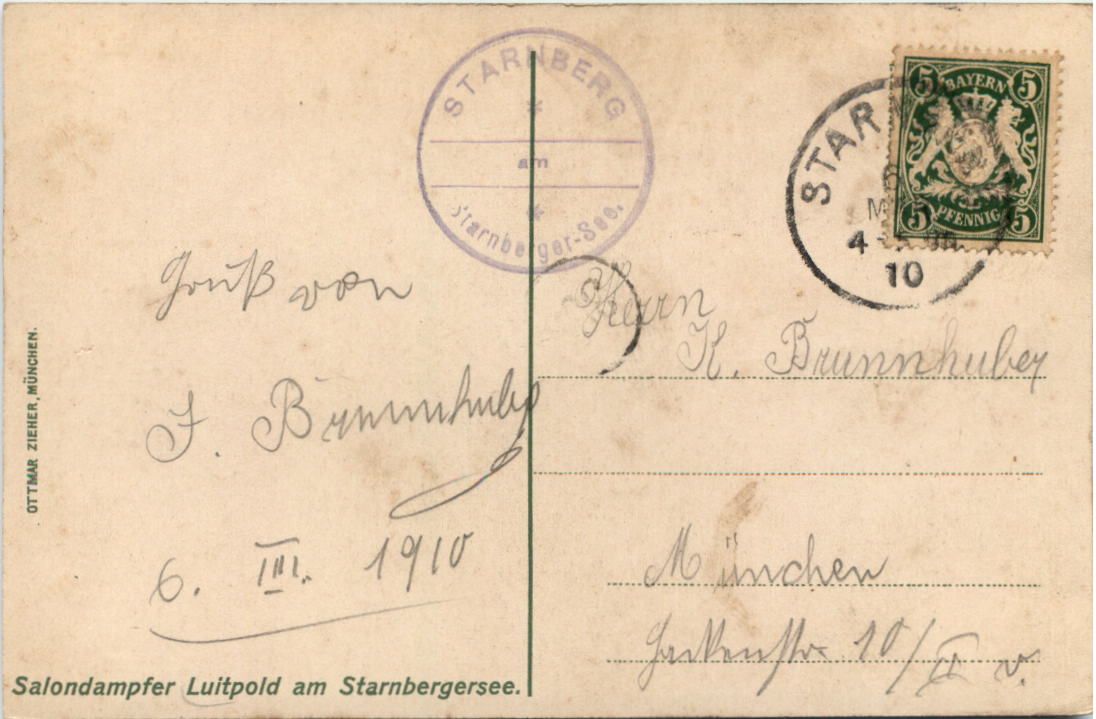 STARNBERG
am
Starnberger-See.
STAR
6
M
4
10
5 BAYERN 5
5 PFENNIG 5
Gruß von
J. Brunnhuber
6. III. 1910
Herrn
K. Brunnhuber
München
10/II v.
OTTMAR ZIEHER, MÜNCHEN.
Salondampfer Luitpold am Starnbergersee.